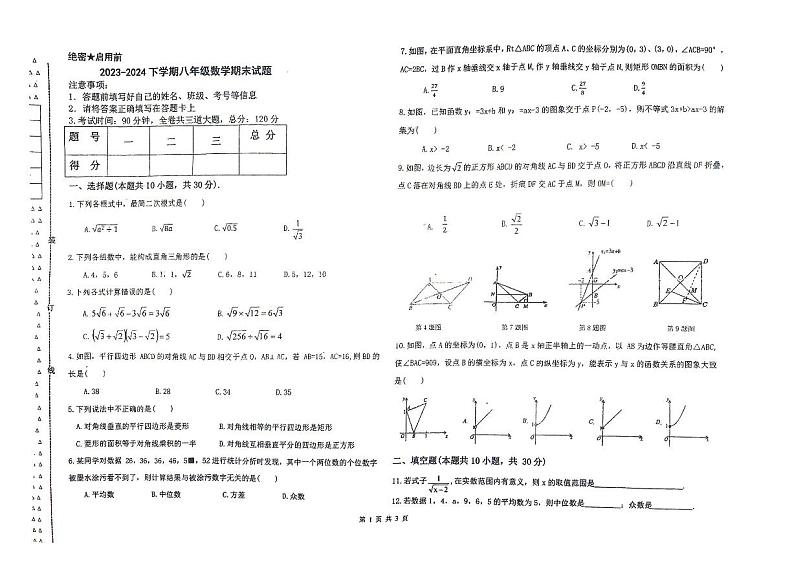 绝密★启用前
2023-2024下学期八年级数学期末试题
注意事项:
1.答题前填写好自己的姓名、班级、考号等信息
2.请将答案正确填写在答题卡上
3.考试时间:90分钟,全卷共三道大题,总分:120分
题 号 一 二 三 总 分
得 分
一、选择题(本题共10小题,共30分).
1.下列各根式中,最简二次根式是( )
A.√(a²+1) B.√(8a) C.√0.5 D.1/√3
2.下列各组数中,能构成直角三角形的是( )
A.4,5,6 B.1,1,√2 C.6,8,11 D.5,12,10
3.下列各式计算错误的是( )
A.5√6+√6-3√6=3√6 B.√9×√12=6√3
C.(√3+√2)(√3-√2)=5 D.√256÷√16=4
4.如图,平行四边形ABCD的对角线AC与BD相交于点O,AB⊥AC,若AB=15,AC=16,则BD的
长是( )
A.38 B.28 C.34 D.35
5.下列说法中不正确的是( )
A.对角线垂直的平行四边形是菱形 B.对角线相等的平行四边形是矩形
C.菱形的面积等于对角线乘积的一半 D.对角线互相垂直平分的四边形是正方形
6.某同学对数据26,36,36,46,5■,52进行统计分析时发现,其中一个两位数的个位数字
被墨水涂污看不到了,则计算结果与被涂污数字无关的是( )
A.平均数 B.中位数 C.方差 D.众数
装
订
线
7.如图,在平面直角坐标系中,Rt△ABC的顶点A、C的坐标分别为(0,3)、(3,0),∠ACB=90°,
AC=2BC,过B作x轴垂线交x轴于点M,作y轴垂线交y轴于点N,则矩形OMBN的面积为( )
A.27/4 B.9 C.27/8 D.9/4
8.如图,已知函数y₁=3x+b和y₂=ax-3的图象交于点P(-2,-5),则不等式3x+b>ax-3的解
集为( )
A.x>-2 B.x<-2 C.x>-5 D.x<-5
9.如图,边长为√2的正方形ABCD的对角线AC与BD交于点O,将正方形ABCD沿直线DF折叠,
点C落在对角线BD上的点E处,折痕DF交AC于点M,则OM=( )
A.1/2 B.√2/2 C.√3-1 D.√2-1
y₁=3x+b
y₂=ax-3
第4题图 第7题图 第8题图 第9题图
10.如图,点A的坐标为(0,1),点B是x轴正半轴上的一动点,以AB为边作等腰直角△ABC,
使∠BAC=90°,设点B的横坐标为x,点C的纵坐标为y,能表示y与x的函数关系的图象大致
是( )
A. B. C. D.
二、填空题(本题共10小题,共30分)
11.若式子1/√(x-2),在实数范围内有意义,则x的取值范围是
12.若数据1,4,a,9,6,5的平均数为5,则中位数是 ;众数是 .
第1页共3页